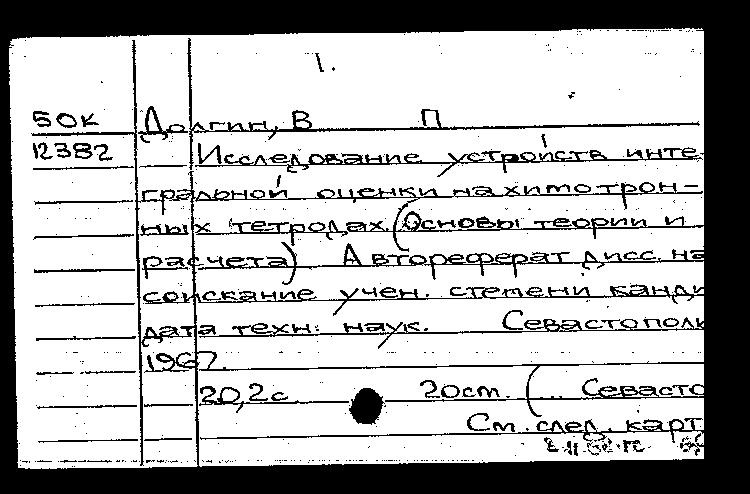 1.
БОК Долгин, В П
12382 Исследование устройств инте-
гральной оценки на химотрон-
ных тетродах (Основы теории и
расчета) Автореферат дисс. на
соискание учен. степени канди
дата техн. наук. Севастополь
1967.
20,2с. 20см. (... Севасто
См. след. карт